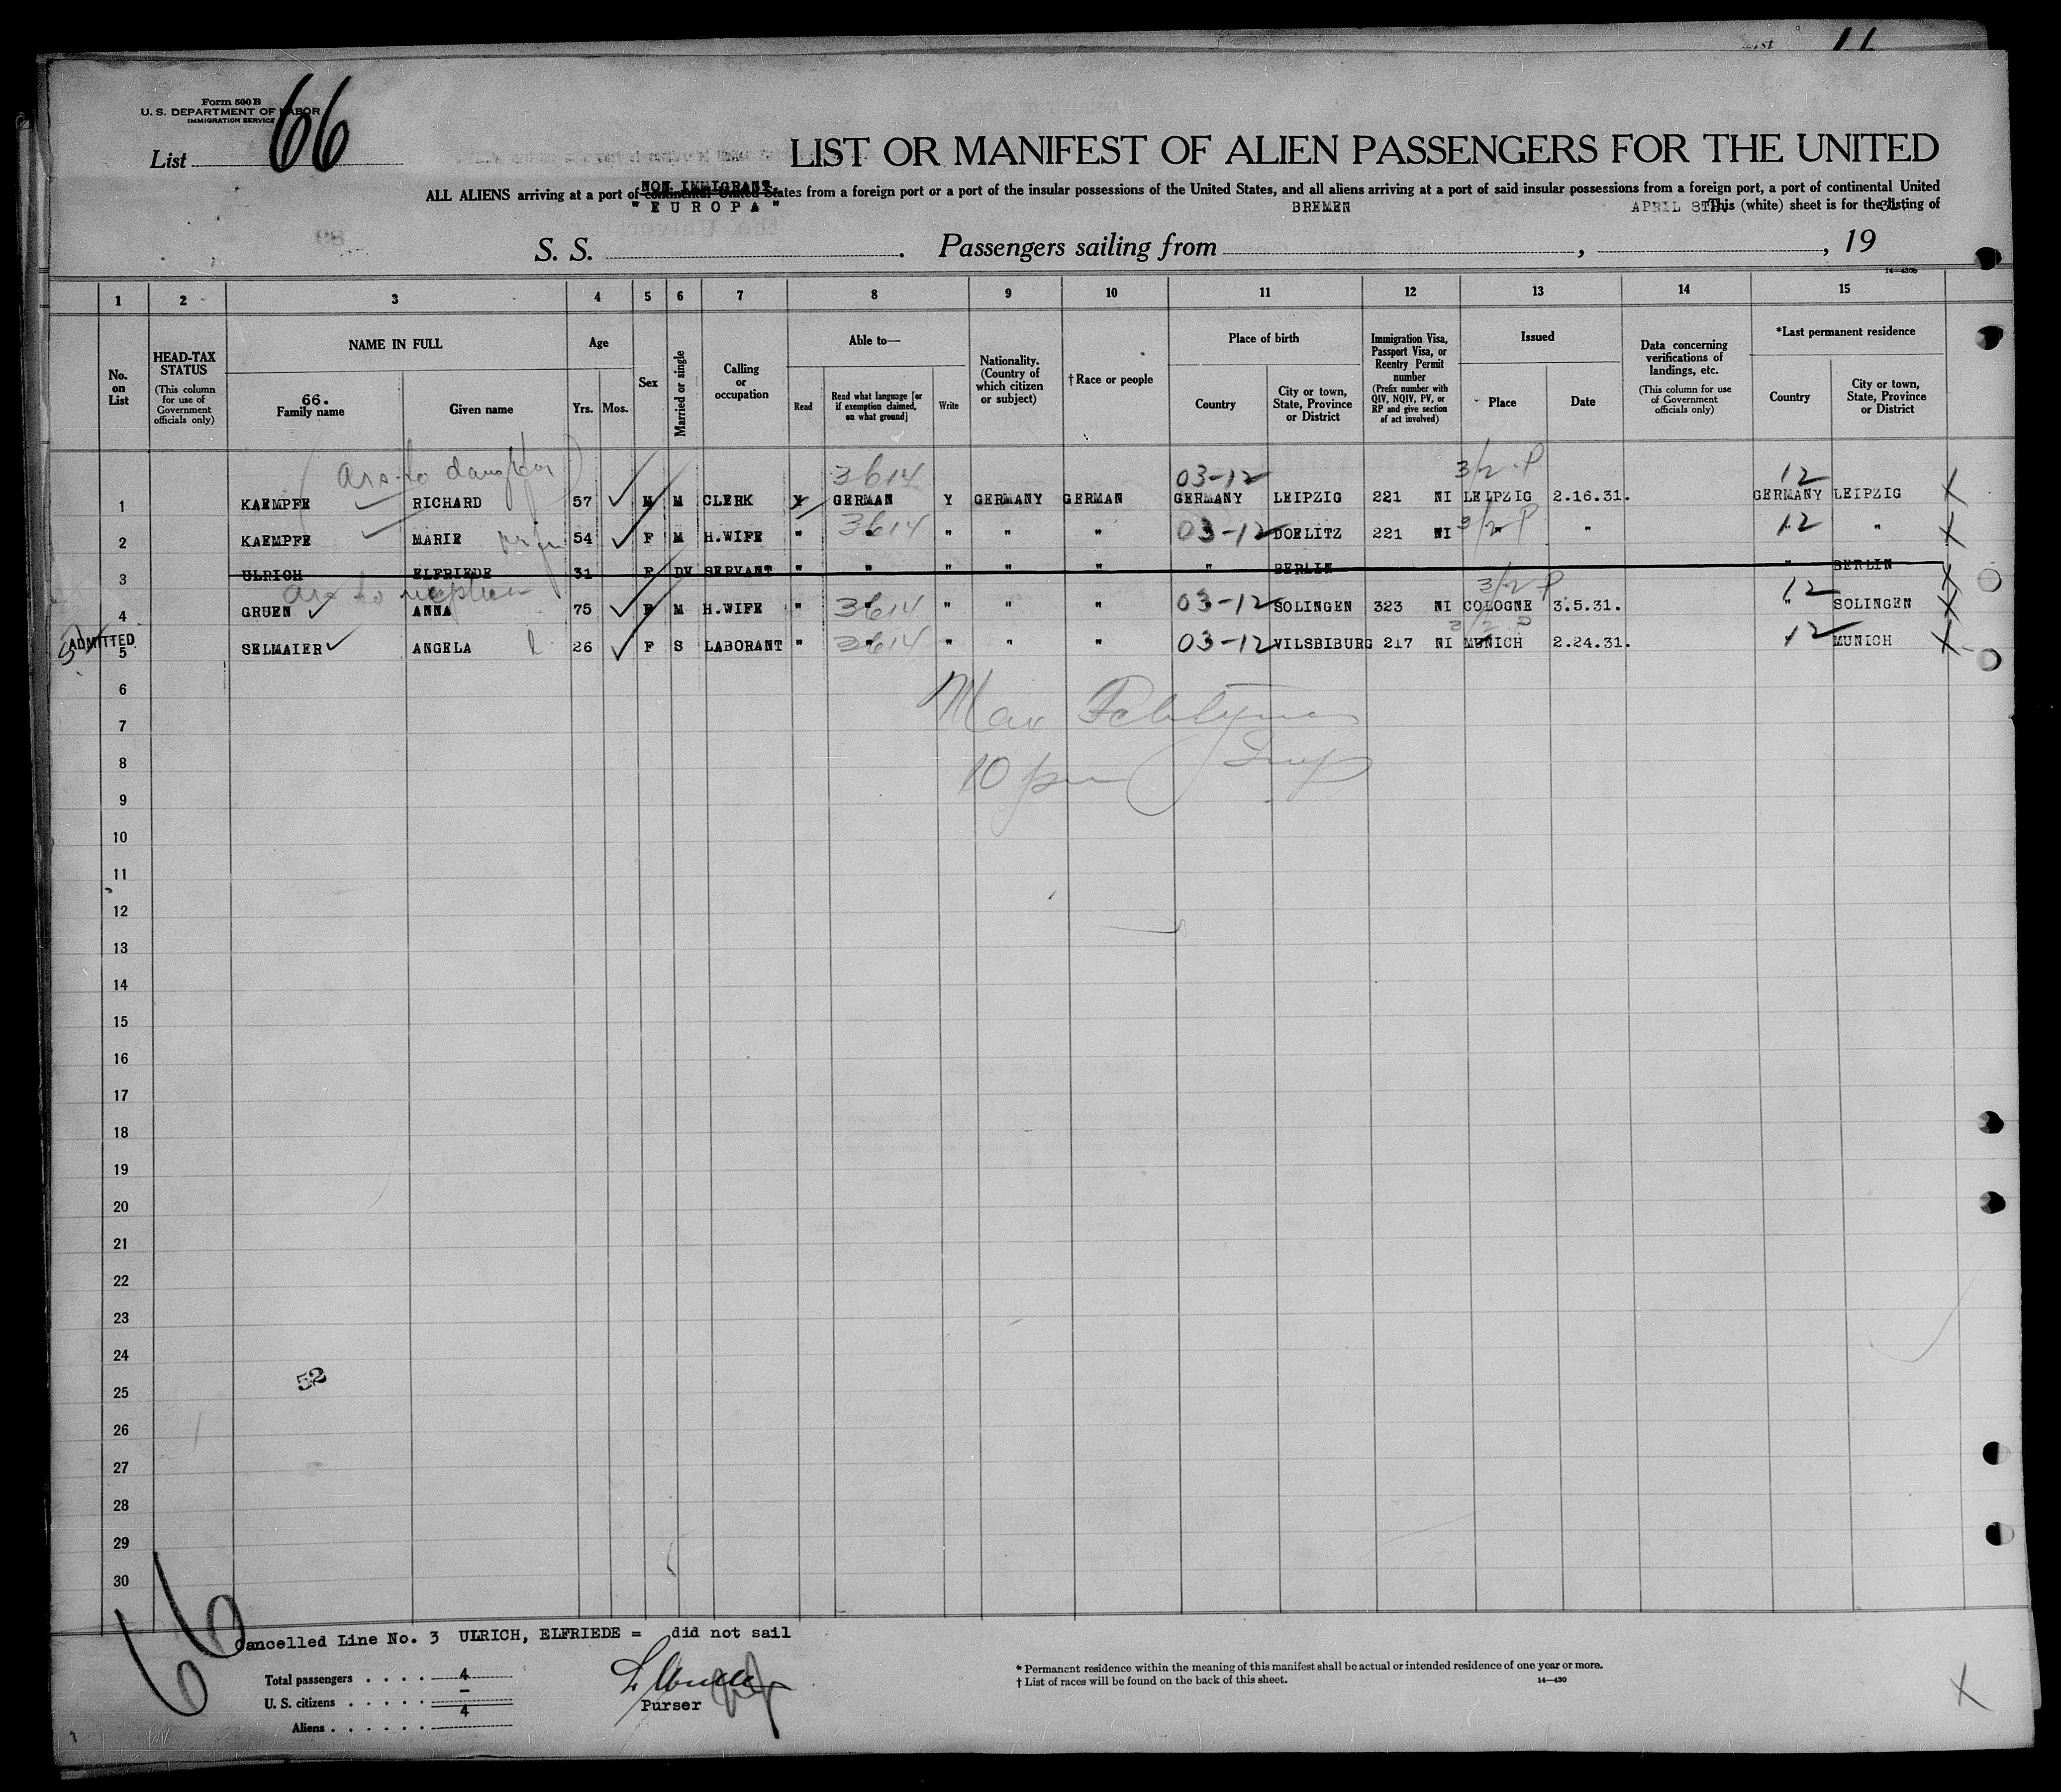 11
Form 500 B
U. S. DEPARTMENT OF LABOR
IMMIGRATION SERVICE
List 66
LIST OR MANIFEST OF ALIEN PASSENGERS FOR THE UNITED
NON IMMIGRANT.
ALL ALIENS arriving at a port of continental United States from a foreign port or a port of the insular possessions of the United States, and all aliens arriving at a port of said insular possessions from a foreign port, a port of continental United
"EUROPA" BREMEN APRIL 8TH. This (white) sheet is for the listing of
S. S. . Passengers sailing from , , 19
14—430b
1 2 3 4 5 6 7 8 9 10 11 12 13 14 15
No. on List
HEAD-TAX STATUS
(This column for use of Government officials only)
NAME IN FULL
66.
Family name
Given name
Age
Yrs. Mos.
Sex
Married or single
Calling or occupation
Able to—
Read
Read what language [or if exemption claimed, on what ground]
Write
Nationality. (Country of which citizen or subject)
†Race or people
Place of birth
Country
City or town, State, Province or District
Immigration Visa, Passport Visa, or Reentry Permit number
(Prefix number with QIV, NQIV, PV, or RP and give section of act involved)
Issued
Place
Date
Data concerning verifications of landings, etc.
(This column for use of Government officials only)
*Last permanent residence
Country
City or town, State, Province or District
to daughter 3614 03-12 3/2 P 12
1 KAEMPFE RICHARD 57 M M CLERK Y GERMAN Y GERMANY GERMAN GERMANY LEIPZIG 221 NI LEIPZIG 2.16.31. GERMANY LEIPZIG X
2 KAEMPFE MARIE 54 F M H.WIFE " 3614 " " " 03-12 DOELITZ 221 NI 3/2 P " " 12 " X
3 ULRICH ELFRIEDE 31 F DV SERVANT " " " " " " BERLIN " BERLIN X
to 3/2 P
4 GRUEN ANNA 75 F M H.WIFE " 3614 " " " 03-12 SOLINGEN 323 NI COLOGNE 3.5.31. 12 " SOLINGEN X
ADMITTED
5 SELMAIER ANGELA 26 F S LABORANT " 3614 " " " 03-12 VILSBIBURG 217 NI MUNICH 2.24.31. 12 MUNICH X
6
7
8
9
10 pm
10
11
12
13
14
15
16
17
18
19
20
21
22
23
24
52
25
26
27
28
29
30
66
Cancelled Line No. 3 ULRICH, ELFRIEDE = did not sail
Total passengers . . . . 4
U. S. citizens . . . . . –
Aliens . . . . . . 4
Purser
* Permanent residence within the meaning of this manifest shall be actual or intended residence of one year or more.
† List of races will be found on the back of this sheet.
14—430
X